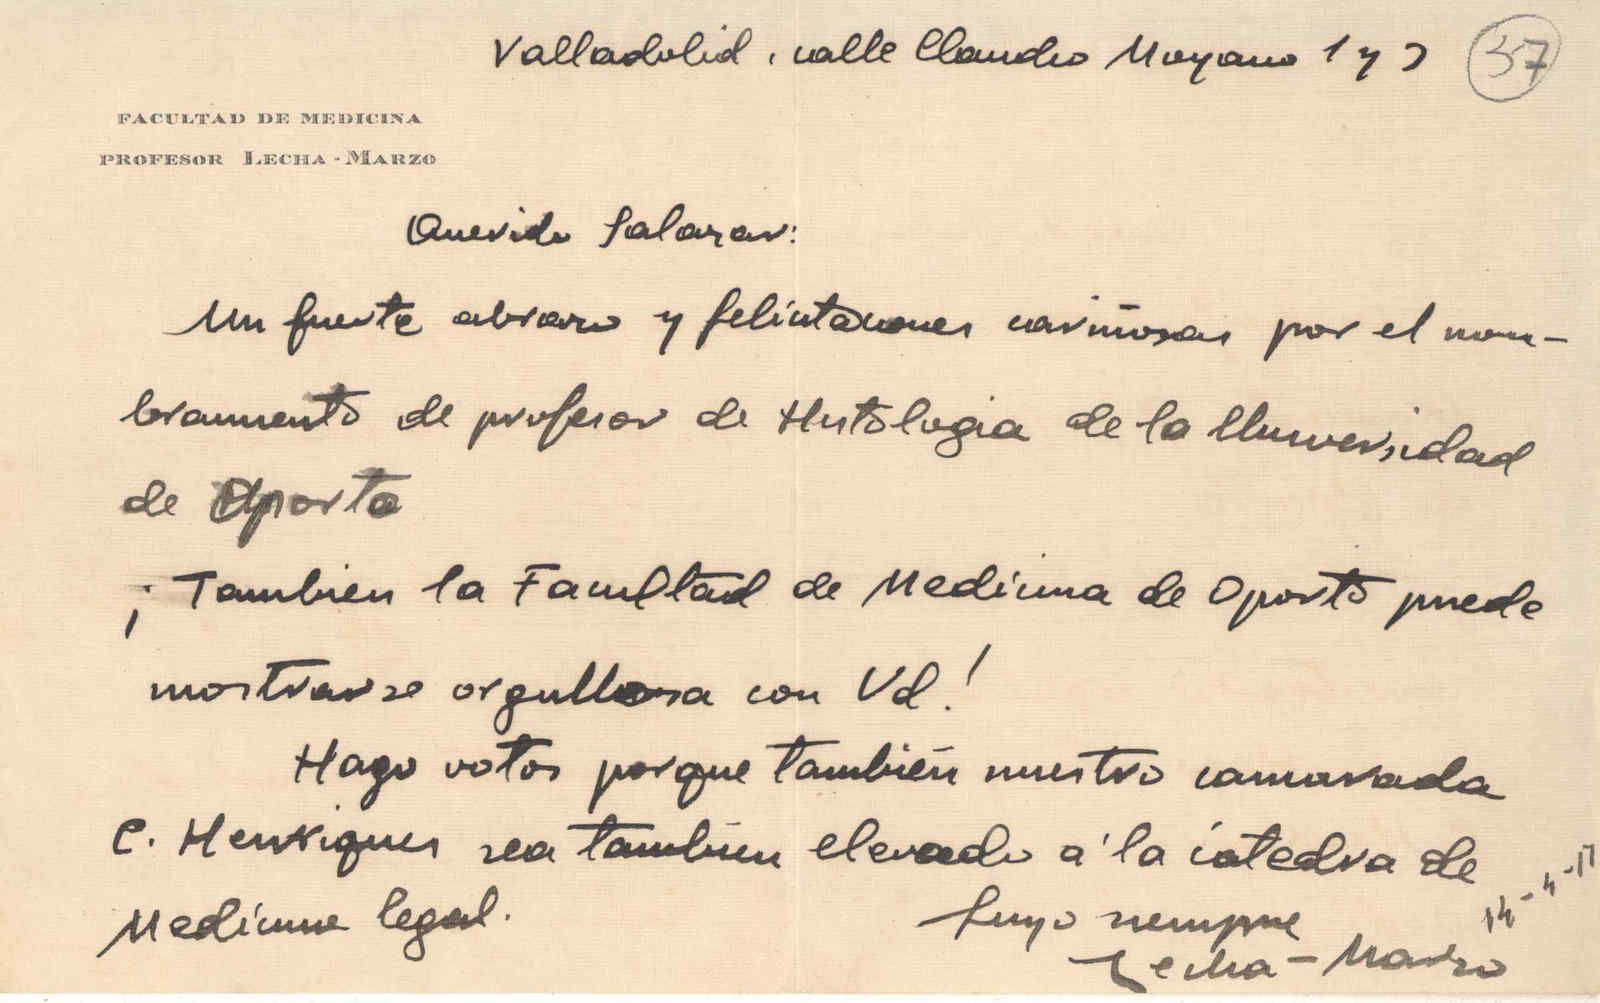 Valladolid, calle Claudio Moyano 1 y 3
37
FACULTAD DE MEDICINA
PROFESOR LECHA-MARZO
Querido Salazar:
Un fuerte abrazo y felicitaciones cariñosas por el nom-
bramiento de profesor de Histologia de la Universidad
de Oporto
¡Tambien la Facultad de Medicina de Oporto puede
mostrarse orgullosa con Vd!
Hago votos porque también nuestro camarada
C. Henriques sea también elevado á la cátedra de
Medicina legal.
Suyo siempre
Lecha-Marzo
14-4-17